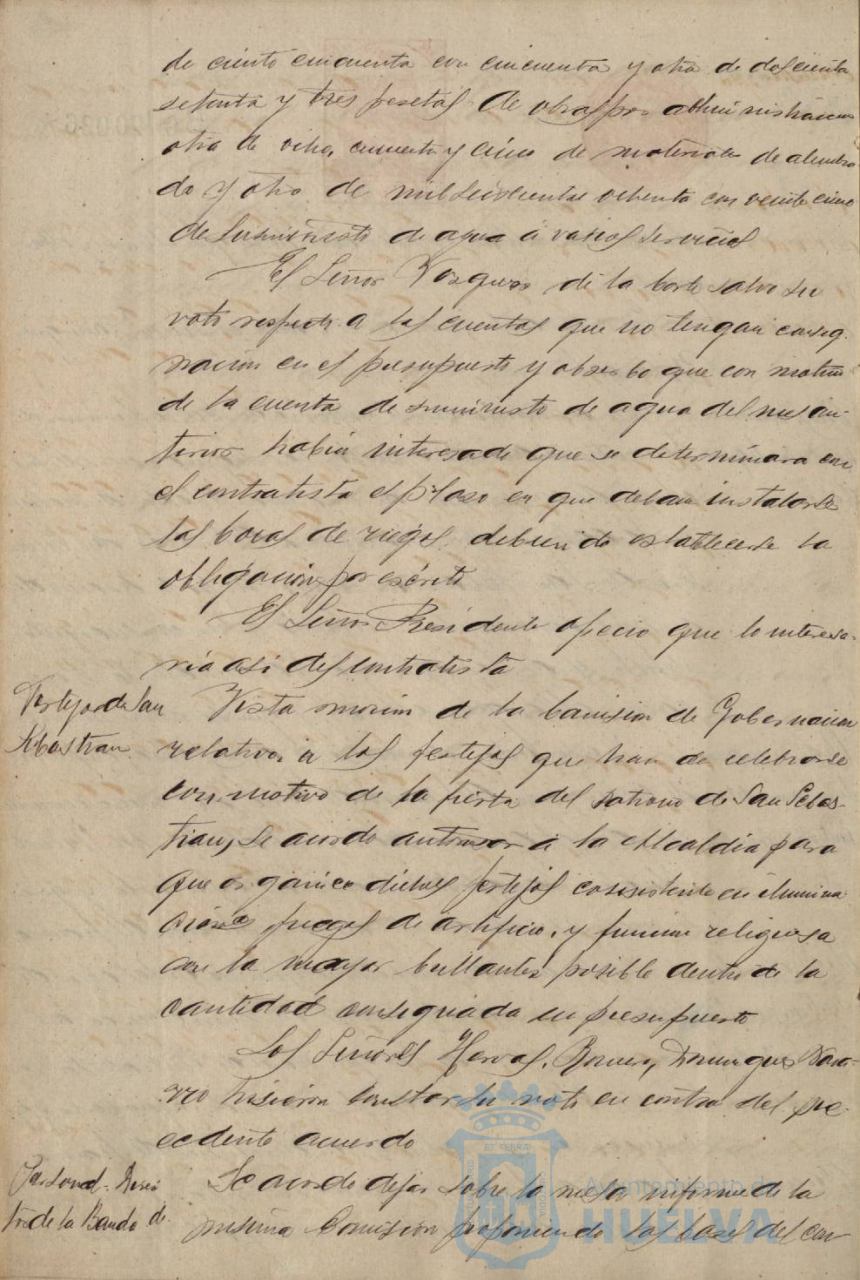 de ciento cincuenta con cincuenta y otra de doscienta
setenta y tres pesetas de obras por administracion
otra de ocho, cuenta y cinco de materiales de alumbra
do y otra de mil seiscientas ochenta con veinte cinco
de suministro de agua á varios servicios
El Señor Vazquez de la Corte salvo su
voto respecto a las cuentas que no tengan consig-
nacion en el presupuesto y observo que con motivo
de la cuenta de suministro de agua del mes an-
terior habia interesado que se determinara con
el contratista el plaso en que deban instalarse
las bocas de riegos debiendo establecerse la
obligacion por escrito
El Señor Presidente ofrecio que lo interesa-
ria asi del contratista
Festejos de San
Sebastian
Vista mocion de la Comision de Gobernacion
relativa a los festejos que han de celebrarse
con motivo de la fiesta del Patrono de San Sebas-
tian, se acordo autorizar á la Alcaldia para
que organice dichos festejos consistente en ilumina
ciones fuegos de artificio, y funcion religiosa
con la mayor brillantez posible dentro de la
cantidad consignada en presupuesto
Los Señores Hervas, Romero, Dominguez
hisieron constar su voto en contra del pre-
cedente acuerdo
Personal
tor de la Banda de
Se acordo dejar sobre la mesa informe de la
misma Comision proponiendo las bases del con
Ayuntamiento de
HUELVA